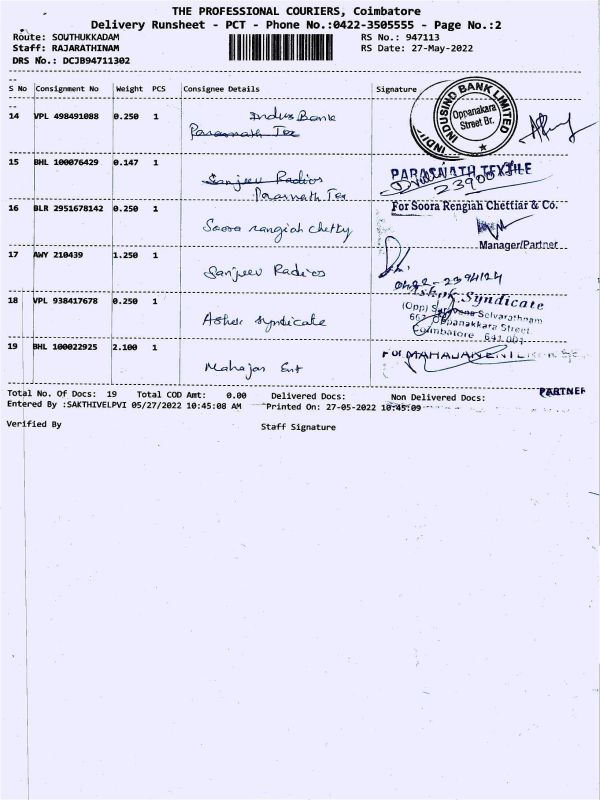 THE PROFESSIONAL COURIERS, Coimbatore
Delivery Runsheet - PCT - Phone No.:0422-3505555 - Page No.:2
Route: SOUTHUKKADAM RS No.: 947113
Staff: RAJARATHINAM RS Date: 27-May-2022
DRS No.: DCJB94711302
S No Consignment No Weight PCS Consignee Details Signature
14 VPL 498491088 0.250 1 Indus Bank
Parasnath Tex
INDUSIND BANK LIMITED
Oppanakara
Street Br.
15 BHL 100076429 0.147 1 Sanjeev Radios
Parasnath Tex
PARASNATH TEXTILE
16 BLR 2951678142 0.250 1 Soora rangiah chetty
For Soora Rengiah Chettiar & Co.
Manager/Partner
17 AWY 210439 1.250 1 Sanjeev Radios
0422-2394124
18 VPL 938417678 0.250 1 Ashok Syndicate
Ashok Syndicate
(Opp) Saravana Selvarathnam
Oppanakkara Street
Coimbatore - 641 001
19 BHL 100022925 2.100 1 Mahajan Ent
For MAHAJAN
PARTNER
Total No. Of Docs: 19 Total COD Amt: 0.00 Delivered Docs: Non Delivered Docs:
Entered By :SAKTHIVELPVI 05/27/2022 10:45:08 AM Printed On: 27-05-2022 10:45:09
Verified By Staff Signature